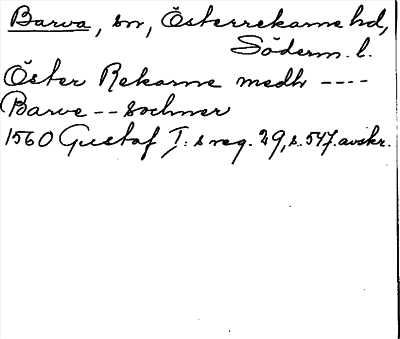 Barva, sn, Österrekarne hd,
Söderm. l.
Öster Rekarne medh ----
Barve -- sochner
1560 Gustaf I:s reg. 29, s. 547. avskr.